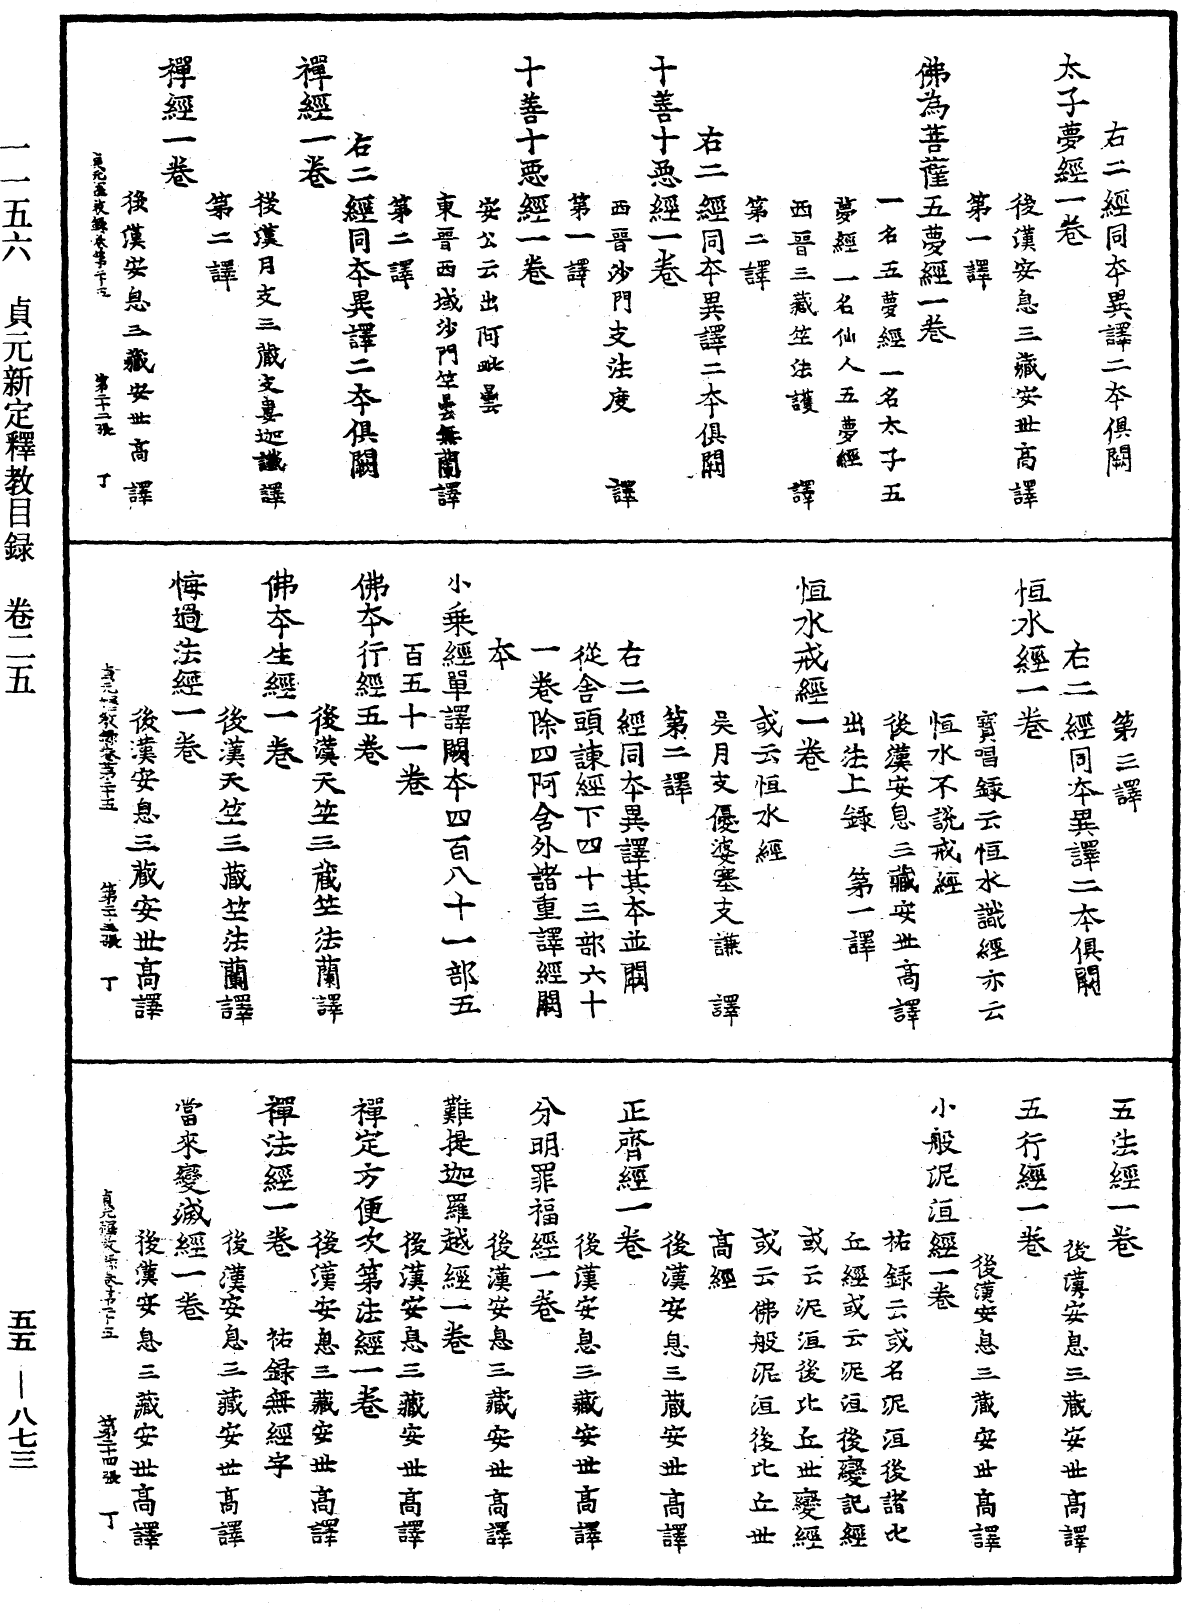 右二經同本異譯二本俱闕
太子夢經一卷
後漢安息三藏安世高譯
第一譯
佛為菩薩五夢經一卷
一名五夢經一名太子五
夢經一名仙人五夢經
西晉三藏竺法護　譯
第二譯
右二經同本異譯二本俱闕
十善十惡經一卷
西晉沙門支法度　譯
第一譯
十善十惡經一卷
安公云出阿毗曇
東晉西域沙門竺曇無蘭譯
第二譯
右二經同本異譯二本俱闕
禪經一卷
後漢月支三藏支婁迦讖譯
第二譯
禪經一卷
後漢安息三藏安世高譯
第三譯
右二經同本異譯二本俱闕
恒水經一卷
寶唱錄云恒水譏經亦云
恒水不說戒經
後漢安息三藏安世高譯
出法上錄　第一譯
恒水戒經一卷
或云恒水經
吳月支優婆塞支謙　譯
第二譯
右二經同本異譯其本並闕
從舍頭諫經下四十三部六十
一卷除四阿含外諸重譯經闕
本
小乘經單譯闕本四百八十一部五
百五十一卷
佛本行經五卷
後漢天竺三藏竺法蘭譯
佛本生經一卷
後漢天竺三藏竺法蘭譯
悔過法經一卷
後漢安息三藏安世高譯
五法經一卷
後漢安息三藏安世高譯
五行經一卷
後漢安息三藏安世高譯
小般泥洹經一卷
祐錄云或名泥洹後諸比
丘經或云泥洹後變記經
或云泥洹後比丘世變經
或云佛般泥洹後比丘世
高經
後漢安息三藏安世高譯
正齊經一卷
後漢安息三藏安世高譯
分明罪福經一卷
後漢安息三藏安世高譯
難提迦羅越經一卷
後漢安息三藏安世高譯
禪定方便次第法經一卷
後漢安息三藏安世高譯
禪法經一卷　祐錄無經字
後漢安息三藏安世高譯
當來變滅經一卷
後漢安息三藏安世高譯
一一五六　貞元新定釋教目録　卷二五
五五―八七三